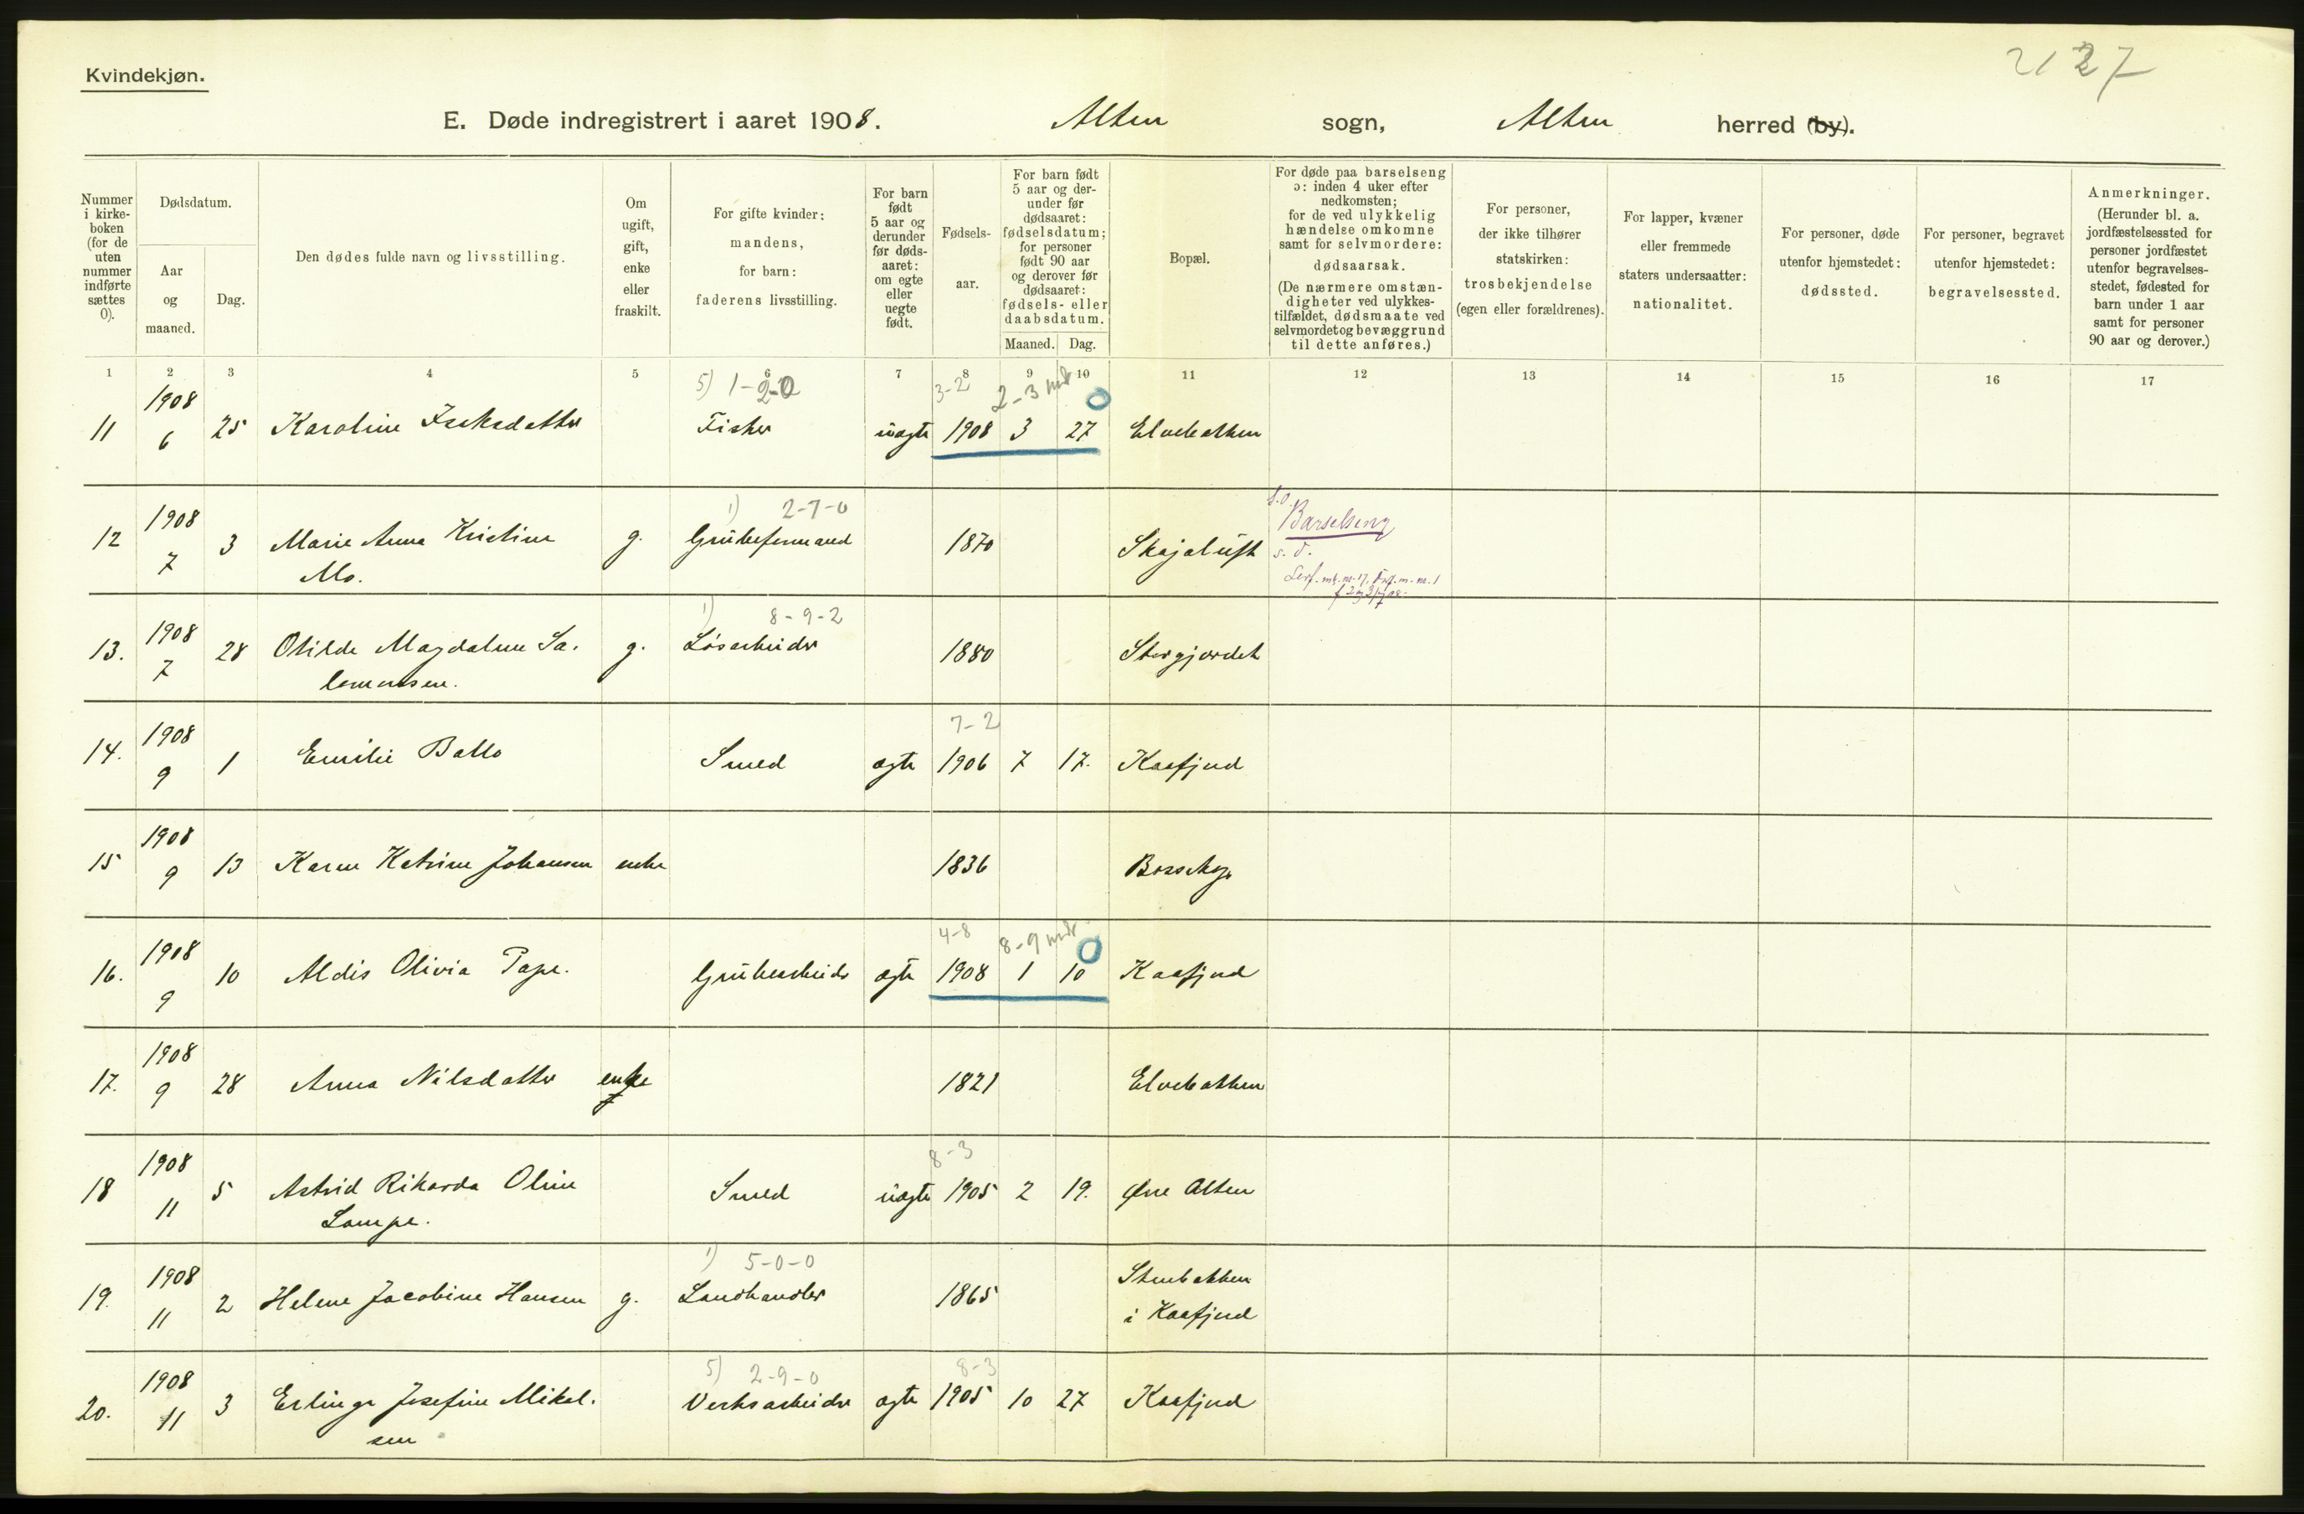 Kvindekjøn.
2127
E. Døde indregistrert i aaret 1908. Alten sogn, Alten herred (by).
Nummer i kirke-boken (for de uten nummer indførte sættes 0).
Dødsdatum.
Aar og maaned.
Dag.
Den dødes fulde navn og livsstilling.
Om ugift, gift, enke eller fraskilt.
For gifte kvinder: mandens, for barn: faderens livsstilling.
For barn født 5 aar og derunder før døds-aaret: om egte eller uegte født.
Fødsels-aar.
For barn født 5 aar og der-under før dødsaaret: fødselsdatum; for personer født 90 aar og derover før dødsaaret: fødsels- eller daabsdatum.
Maaned. Dag.
Bopæl.
For døde paa barselseng ɔ: inden 4 uker efter nedkomsten; for de ved ulykkelig hændelse omkomne samt for selvmordere: dødsaarsak. (De nærmere omstæn-digheter ved ulykkes-tilfældet, dødsmaate ved selvmordet og bevæggrund til dette anføres.)
For personer, der ikke tilhører statskirken: trosbekjendelse (egen eller forældrenes).
For lapper, kvæner eller fremmede staters undersaatter: nationalitet.
For personer, døde utenfor hjemstedet: dødssted.
For personer, begravet utenfor hjemstedet: begravelsessted.
Anmerkninger. (Herunder bl. a. jordfæstelsessted for personer jordfæstet utenfor begravelses-stedet, fødested for barn under 1 aar samt for personer 90 aar og derover.)
1 2 3 4 5 6 7 8 9 10 11 12 13 14 15 16 17
5) 1-2-0 3-2 2-3 mdr 0
11 1908 6 25 Karoline Isaksdatter Fisker uægte 1908 3 27 Elvebakken
1) 2-7-0
12 1908 7 3 Marie Anna Kristine Mo. g. Grubeformand 1870 Skajaluft Barselseng
1) 8-9-2
13. 1908 7 28 Otilde Magdalene Sa-lomonsen. g. Løsarbeider 1880 Storgjordet
7-2
14. 1908 9 1 Emilie Ballo Smed ægte 1906 7 17. Kaafjord
15 1908 9 13 Karen Katrine Johansen enke 1836 Bossekop
4-8 8-9 mdr 0
16. 1908 9 10 Aldis Olivia Pape. Grubearbeider ægte 1908 1 10 Kaafjord
17. 1908 9 28 Anna Nilsdatter enke 1821 Elvebakken
8-3
18 1908 11 5 Astrid Rikarda Oline Lampe. Smed uægte 1905 2 19. Øvre Alten
1) 5-0-0
19. 1908 11 2 Helene Jacobine Hansen g. Landhandler 1865 Stenbakken i Kaafjord
5) 2-9-0 8-3
20. 1908 11 3 Erlinge Josefine Mikal-sen Verksarbeider ægte 1905 10 27 Kaafjord